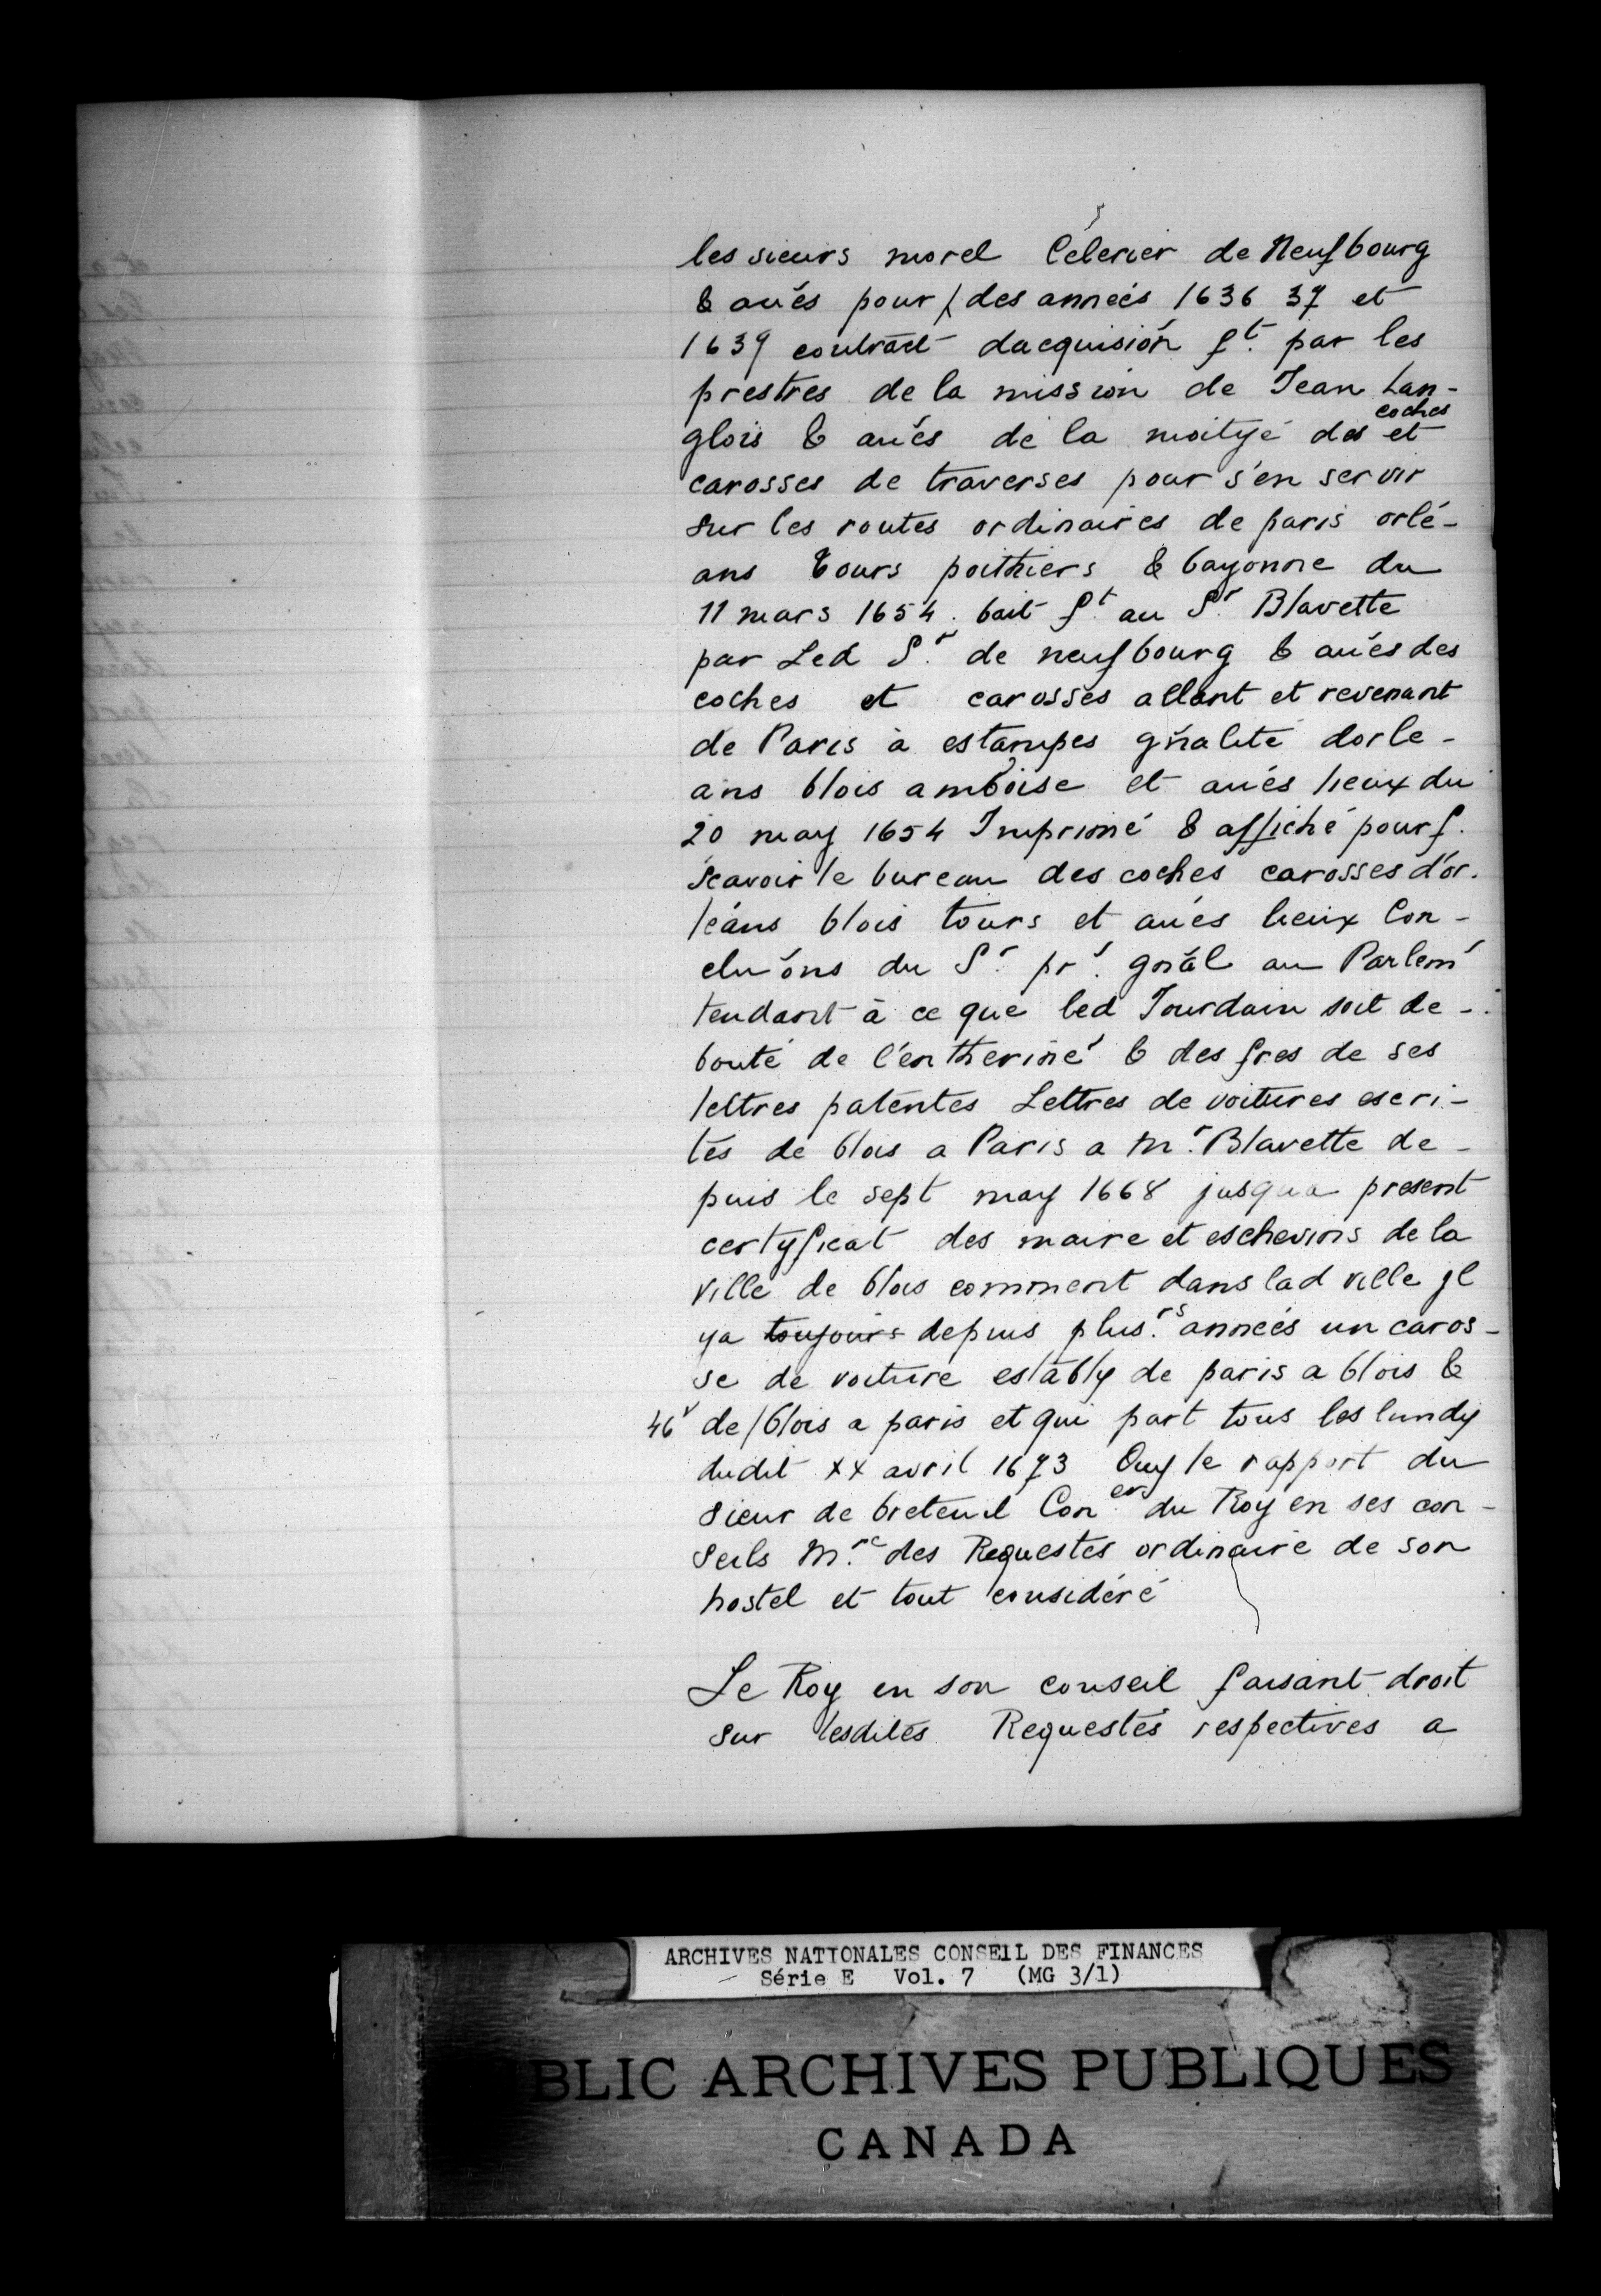 les sieurs morel Celerier de Neufbourg
& aués pour des anneés 1636 37 et
1639 contract dacquisión f.t par les
prestres de la mission de Jean Lan-
glois & aués de la moityé des coches et
carosses de traverses pour s'en servir
sur les routes ordinaires de paris orlé-
ans tours poithiers & bayonne du
11 mars 1654. bait f.t au S.r Blavette
par Led S.r de neufbourg & aués des
coches et carosses allant et revenant
de Paris à estampes gñalité dorle-
ans blois amboise et aués lieux du
20 may 1654 Imprimé & affiché pour f.
scavoir le bureau des coches carosses d'or.
leáns blois tours et aués lieux Con-
cluóns du S.r pr.r gñál au Parlem̃
tendant à ce que led Jourdain soit de-
bouté de l'entheriné & des fres de ses
lettres patentes Lettres de voitures escri-
tes de blois a Paris a M.r Blavette de-
puis le sept may 1668 jusqua present
certyficat des maire et eschevins de la
ville de blois comment dans lad ville jl
ya toujours depuis plus.rs anneés un caros-
se de voiture establý de paris a blois &
46v de/blois a paris et qui part tous les lundy
dudit xx avril 1673 Ouy le rapport du
sieur de breteuil Con.er du Roy en ses con-
seils M.re des Requestes ordinaire de son
hostel et tout considéré
Le Roy en son conseil faisant droit
sur lesdites Requestes respectives a
ARCHIVES NATIONALES CONSEIL DES FINANCES
Série E Vol. 7 (MG 3/1)
BLIC ARCHIVES PUBLIQUES
CANADA